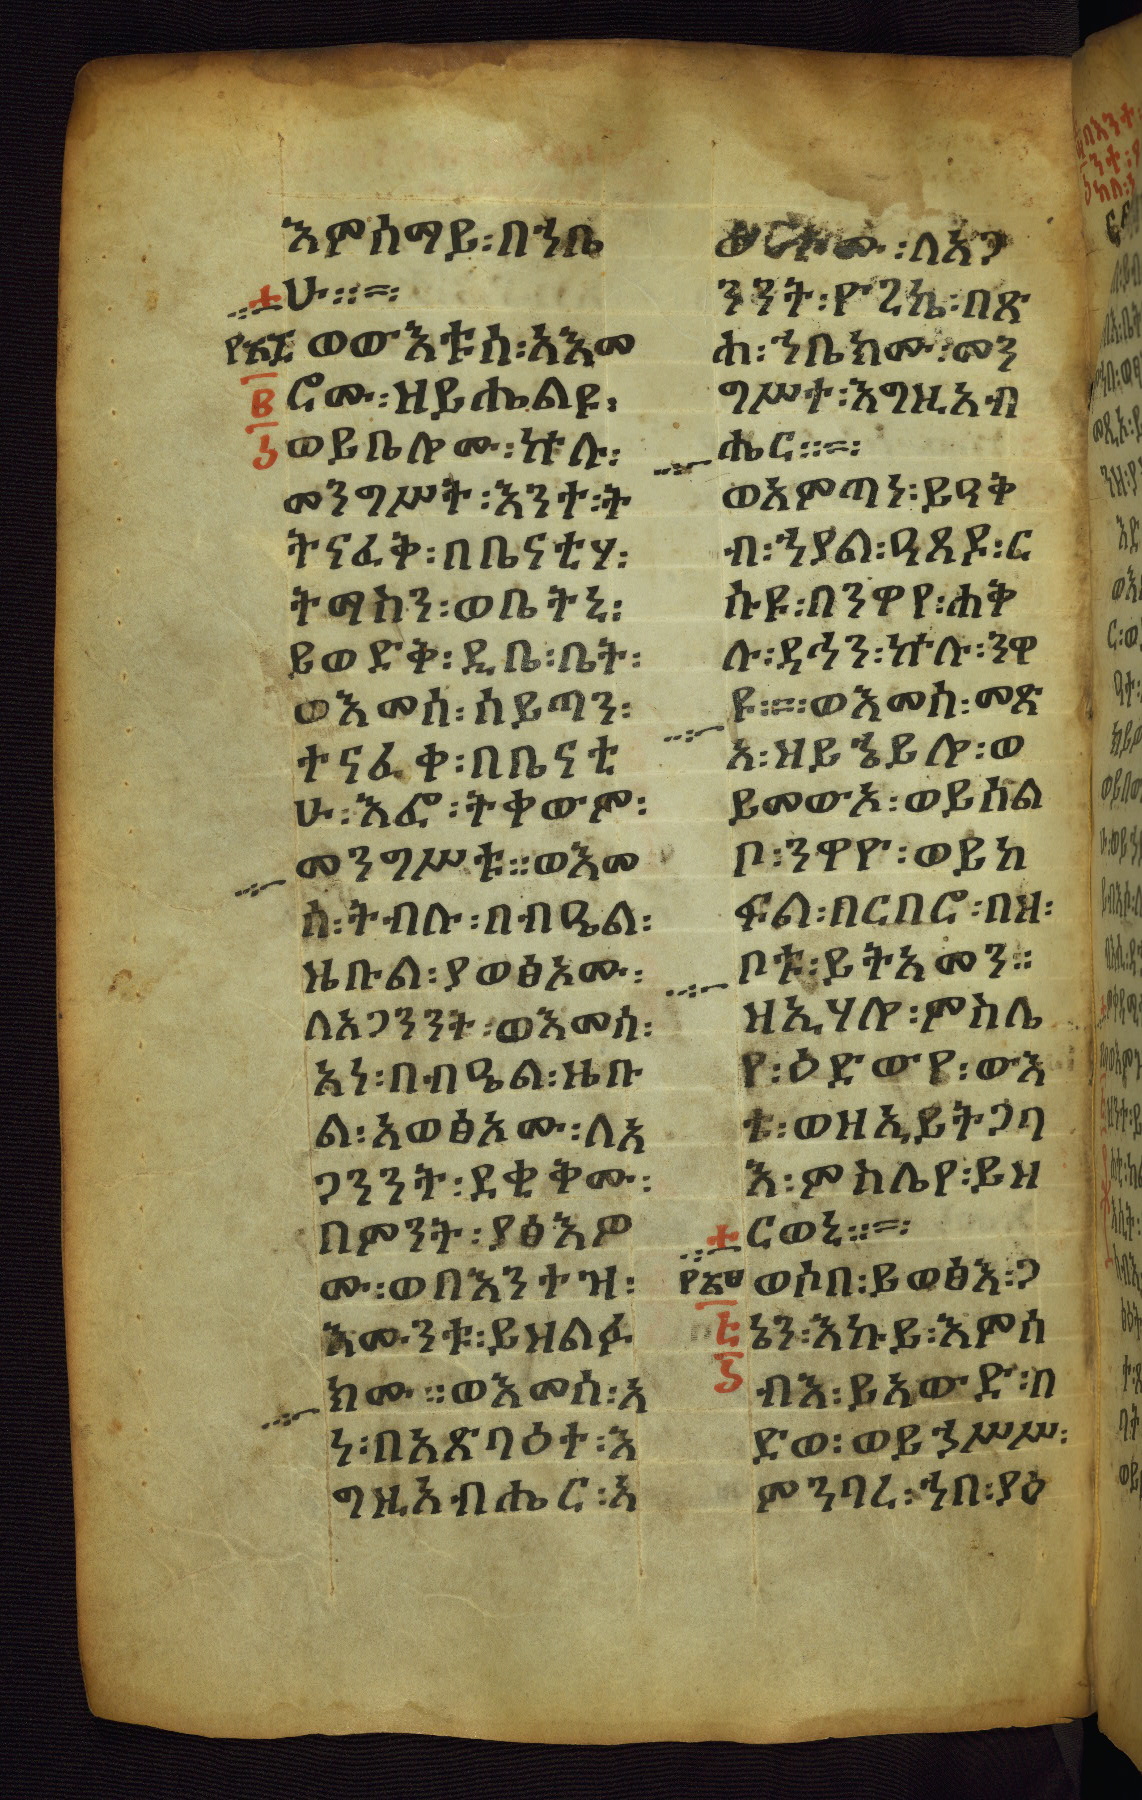 እምሰማይ፡በኀቤ
ሁ።=፡
ወውእቱሰ፡አእመ
ሮሙ፡ዘይሔልዩ፡
ወይቤሎሙ፡ኵሉ፡
መንግሥት፡እንተ፡ት
ትናፈቅ፡በቤናቲሃ፡
ትማስን፡ወቤትኒ፡
ይወድቅ፡ዲቤ፡ቤት፡
ወእመሰ፡ሰይጣን፡
ተናፈቀ፡በቤናቲ
ሁ፡እፎ፡ትቀውም፡
መንግሥቱ።ወእመ
ሰ፡ትብሉ፡በብዔል፡
ዜቡል፡ያወፅአሙ፡
ለአጋንንት፡ወእመሰ፡
አነ፡በብዔል፡ዜቡ
ል፡አወፅኦሙ፡ለአ
ጋንንት፡ደቂቅሙ፡
በምንት፡ያፅእዎ
ሙ፡ወበእንተዝ፡
እሙንቱ፡ይዘልፉ
ክሙ።ወእመሰ፡አ
ነ፡በአጽባዕተ፡እ
ግዚአብሔር፡አ
ለአጋ
ንንት፡ዮጊኬ፡በጽ
ሐ፡ኀቤክሙ፡መን
ግሥተ፡እግዚአብ
ሔር።=፡
ወአምጣነ፡ይዐቅ
ብ፡ኀያል፡ዐጸዶ፡ር
ሱዩ፡በንዋየ፡ሐቅ
ሉ፡ዳኅን፡ኵሉ፡ንዋ
ዩ።=።ወእመሰ፡መጽ
አ፡ዘይኄይሎ፡ወ
ይመውኦ፡ወይሰል
ቦ፡ንዋዮ፡ወይከ
ፍል፡በርበሮ፡በዘ፡
ቦቱ፡ይትአመን።
ዘኢሃሎ፡ምስሌ
የ፡ዕድውየ፡ውእ
ቱ፡ወዘኢይትጋባ
እ፡ምስሌየ፡ይዘ
ርወኒ።=፡
ወሶበ፡ይወፅእ፡ጋ
ኔን፡እኩይ፡እምሰ
ብእ፡ይአውድ፡በ
ድወ፡ወይኃሥሥ፡
ምንባረ፡ኀበ፡ያዕ